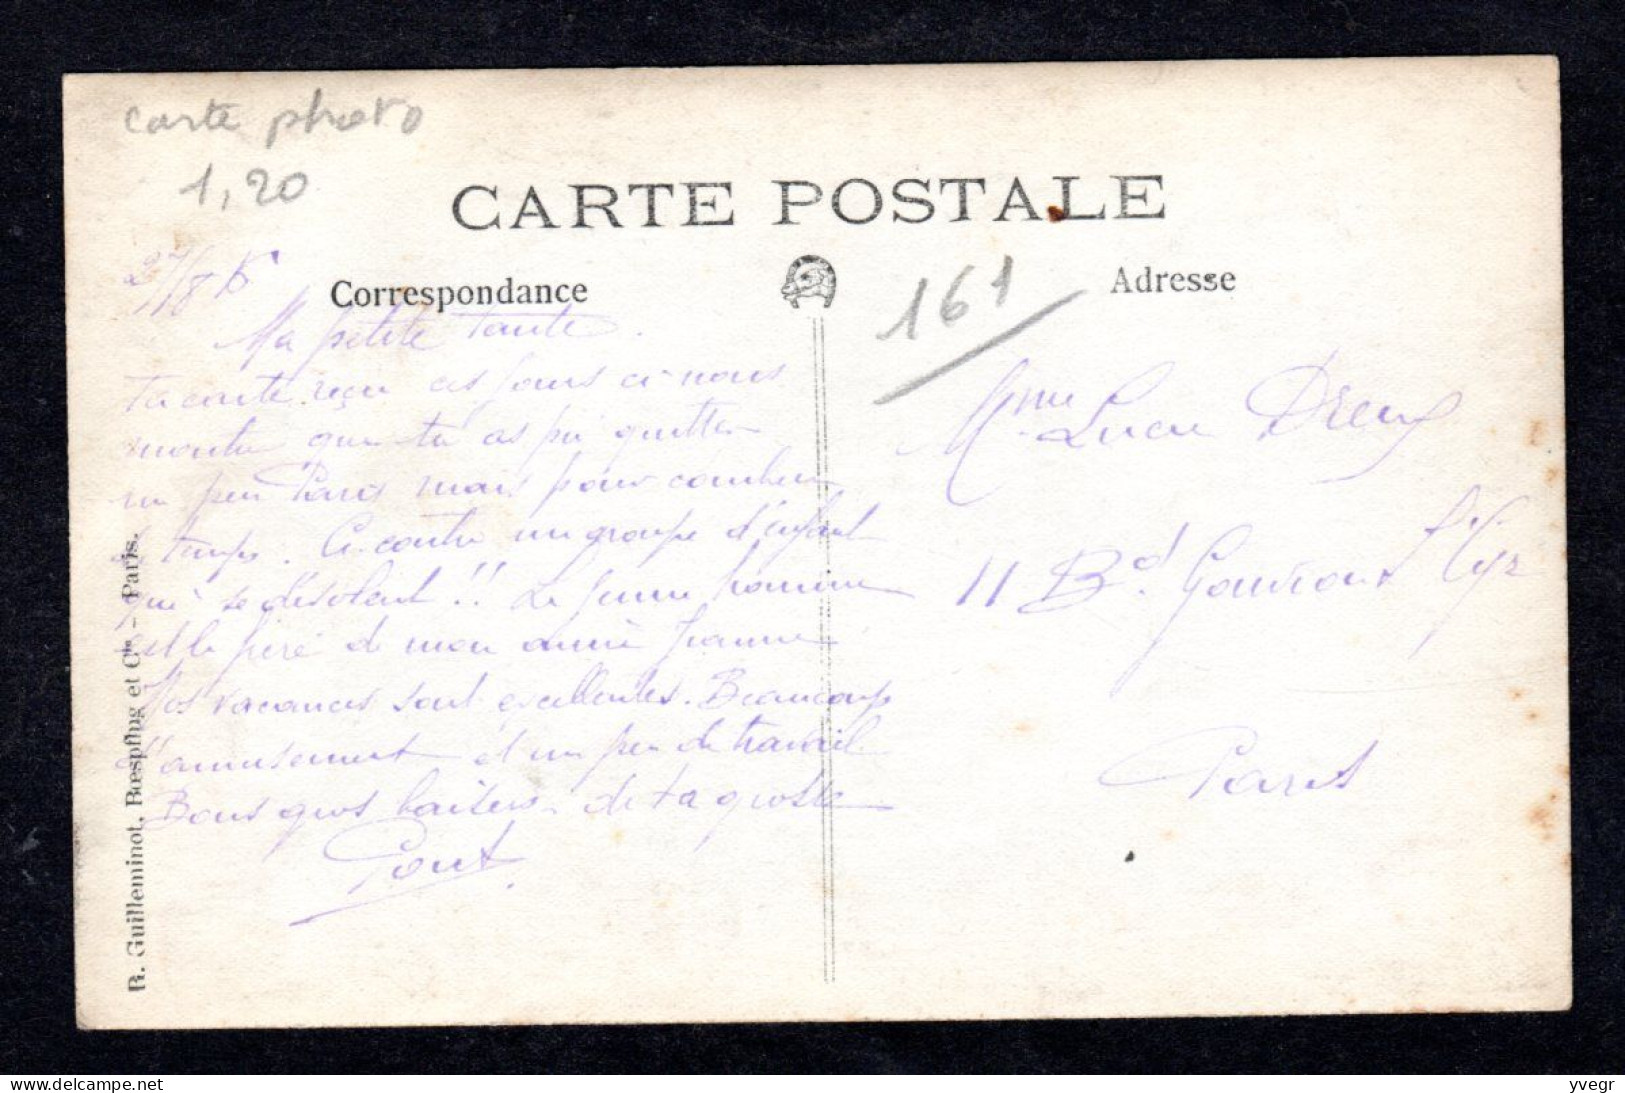 carte photo
1,20
CARTE POSTALE
27/8 15
Correspondance
161
Adresse
Ma petite Tante.
Ta carte reçu ces jours ci nous
montre que tu as pu quitter
un peu Paris mais pour combien
de temps. Ci-contre un groupe d'enfant
qui se désolent !! Le jeune homme
est le père de mon amie Jeanne
Nos vacances sont excellentes. Beaucoup
d'amusement et un peu de travail.
Bons gros baisers de ta grosse
Mme Lucie Dreux
11 Bd. Gouvion St Cyr
Paris
R. Guilleminot, Bœspflug et Cie. - Paris.
yvegr